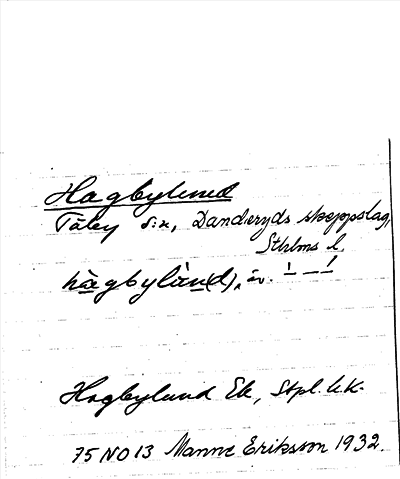 Hagbylund
Täby s:n, Danderyds skeppslag,
Sthlms l.
hàgbylàn(d), äv.
Hagbylund Ek, Stpl. u.k.
75 NO 13 Manne Eriksson 1932.